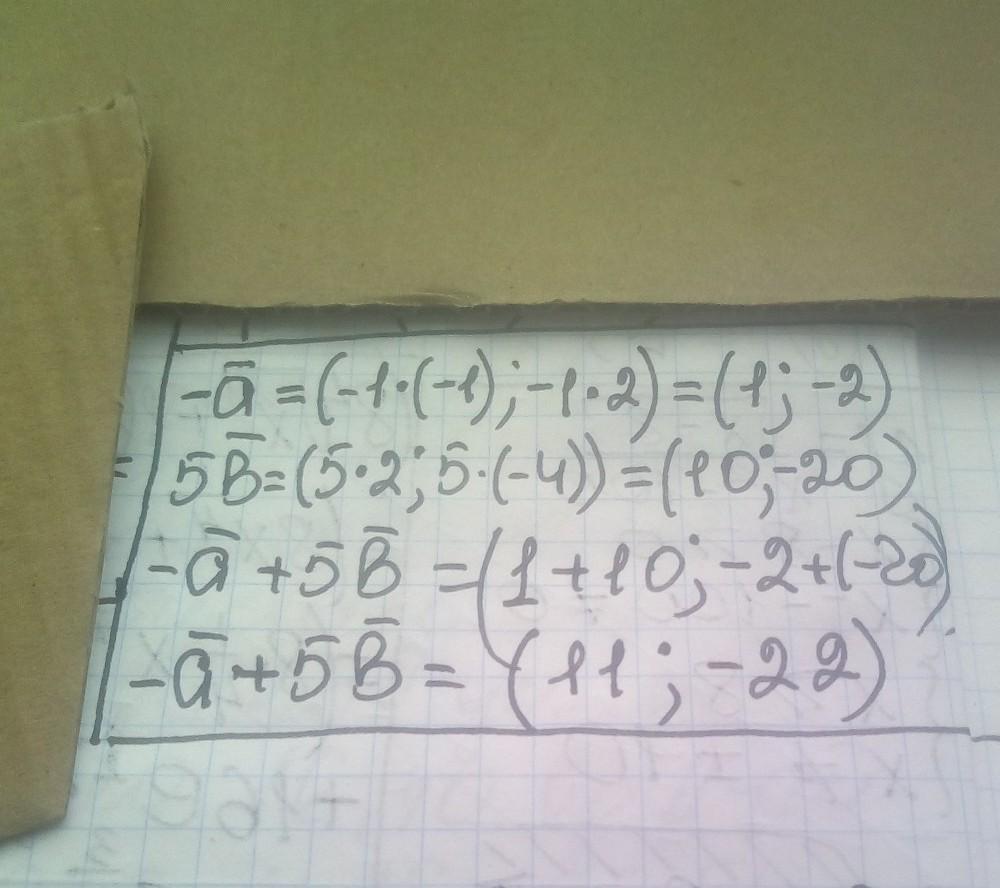 -a̅ = (-1·(-1); -1·2) = (1; -2)
5B̅ = (5·2; 5·(-4)) = (10; -20)
-a̅ + 5B̅ = (1 + 10; -2 + (-20)).
-a̅ + 5B̅ = (11; -22)